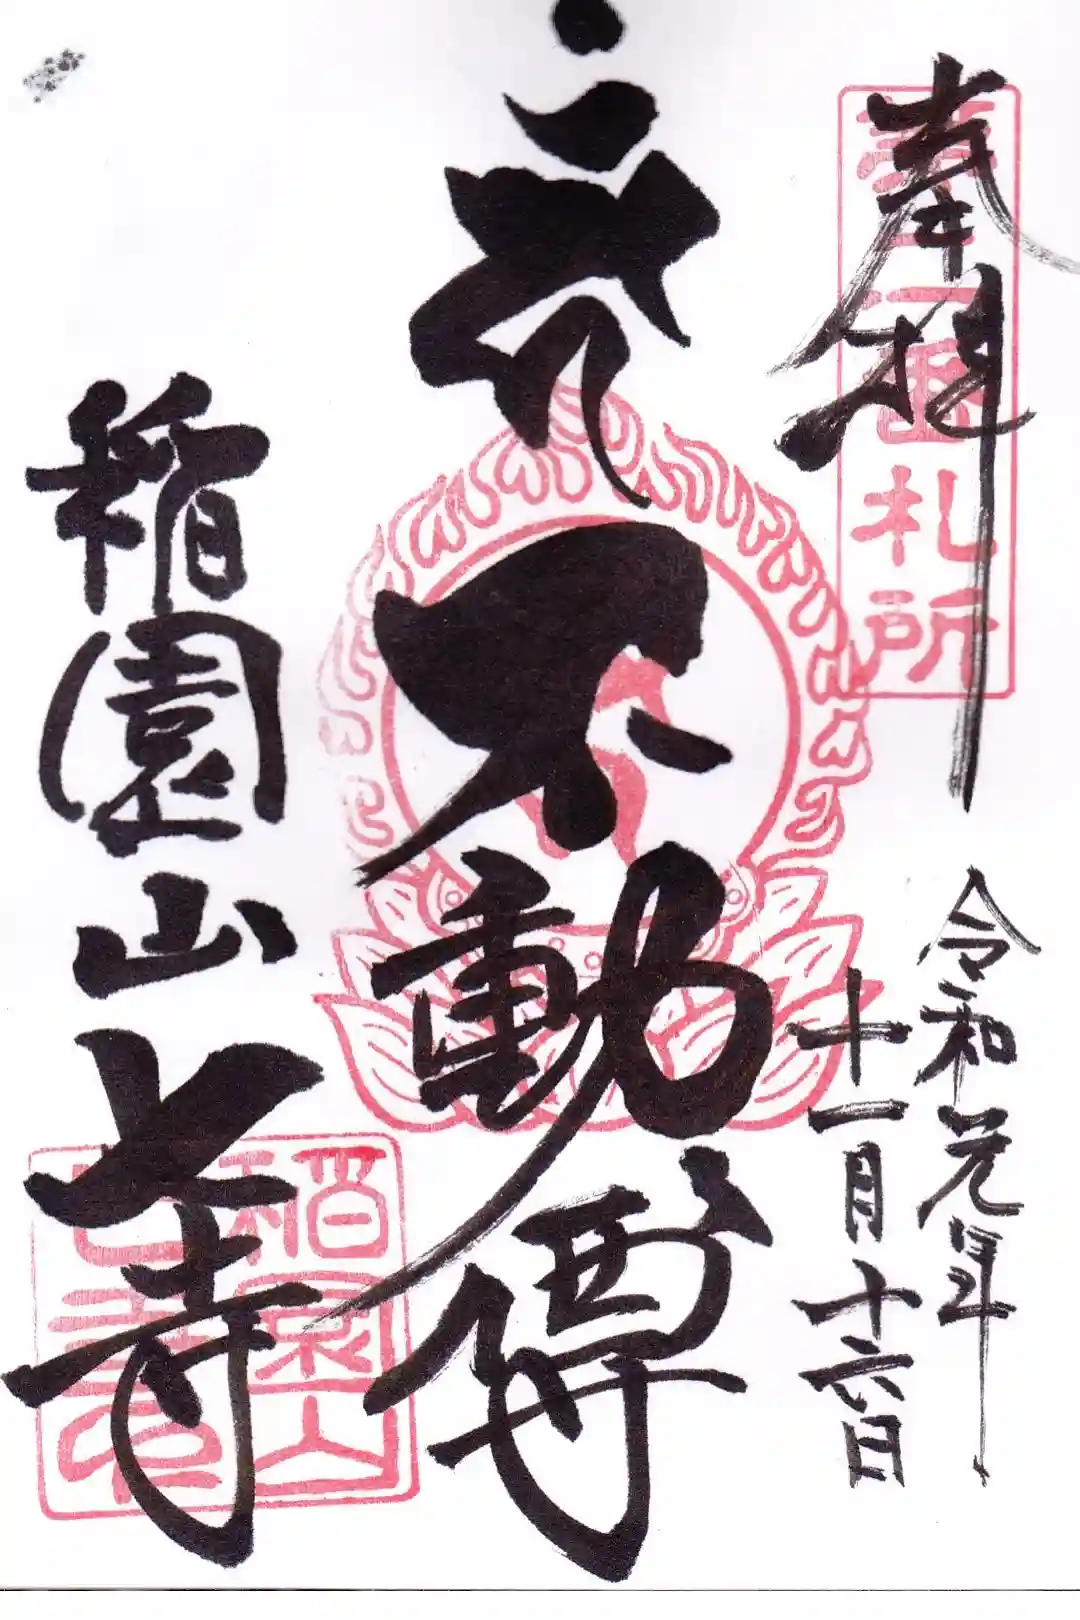 奉拝
札所
令和元年
十一月十六日
不動尊
稲園山
七寺
稲園山
七寺